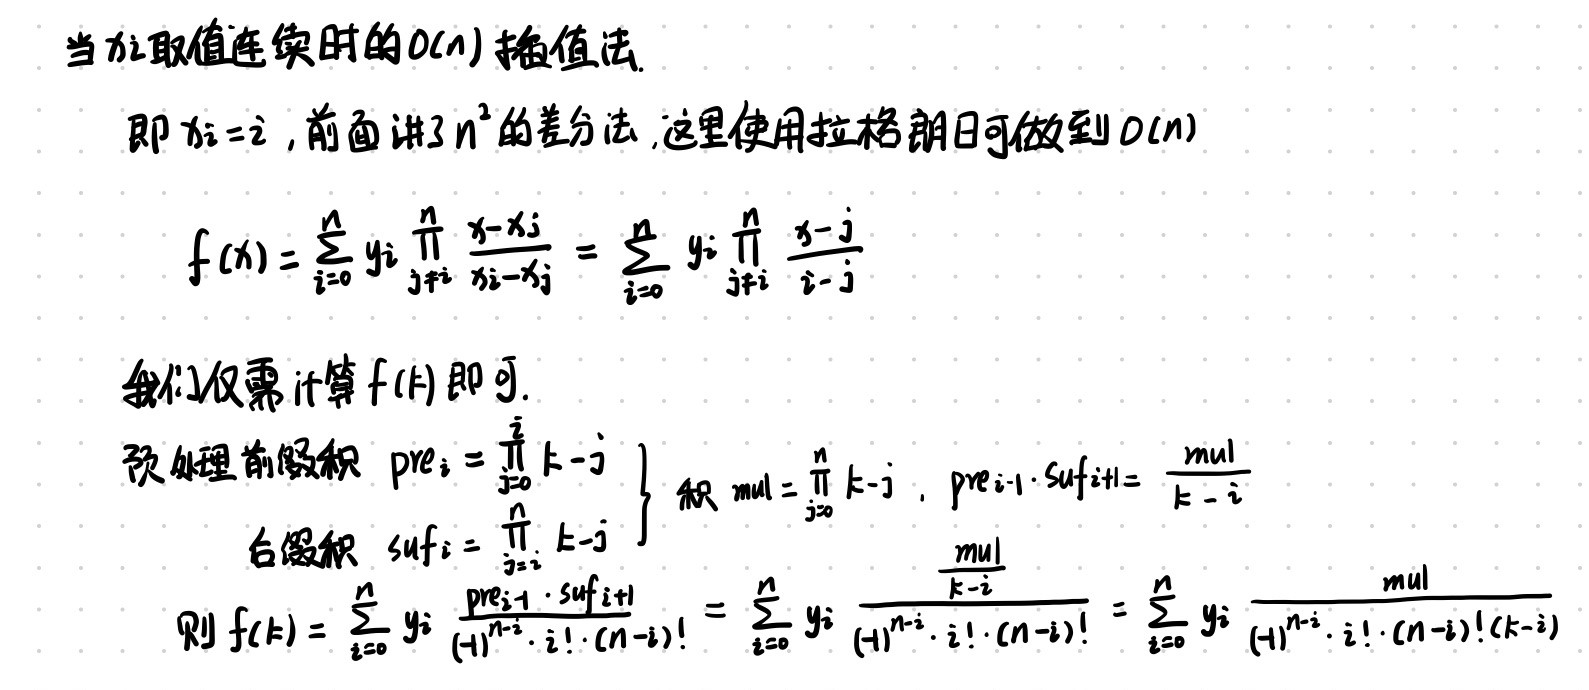 当 xi 取值连续时的 O(n) 插值法.
即 xi = i , 前面讲了 n² 的差分法 , 这里使用拉格朗日可做到 O(n)
f(x) = ∑_{i=0}^{n} y_i ∏_{j≠i}^{n} \frac{x-x_j}{x_i-x_j} = ∑_{i=0}^{n} y_i ∏_{j≠i}^{n} \frac{x-j}{i-j}
我们仅需计算 f(k) 即可.
预处理前缀积 pre_i = ∏_{j=0}^{i} k-j } 积 mul = ∏_{j=0}^{n} k-j , pre_{i-1}·suf_{i+1} = \frac{mul}{k-i}
后缀积 suf_i = ∏_{j=i}^{n} k-j
则 f(k) = ∑_{i=0}^{n} y_i \frac{pre_{i-1}·suf_{i+1}}{(-1)^{n-i}·i!·(n-i)!} = ∑_{i=0}^{n} y_i \frac{\frac{mul}{k-i}}{(-1)^{n-i}·i!·(n-i)!} = ∑_{i=0}^{n} y_i \frac{mul}{(-1)^{n-i}·i!·(n-i)!(k-i)}